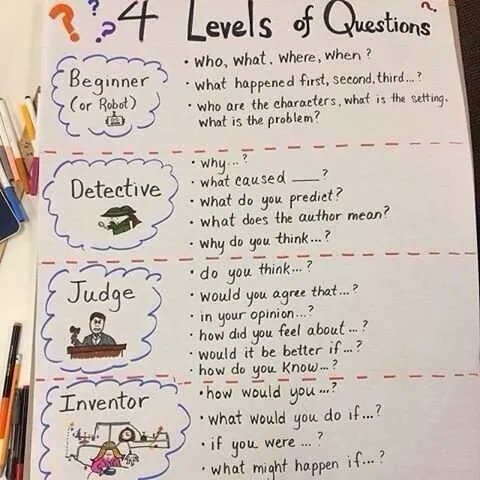 4 Levels of Questions
Beginner
(or Robot)
• who, what, where, when?
• what happened first, second, third...?
• who are the characters, what is the setting,
what is the problem?
Detective
• why...?
• what caused ___?
• what do you predict?
• what does the author mean?
• why do you think...?
Judge
• do you think...?
• would you agree that...?
• in your opinion...?
• how did you feel about...?
• would it be better if...?
• how do you know...?
Inventor
• how would you...?
• what would you do if...?
• if you were ...?
• what might happen if...?